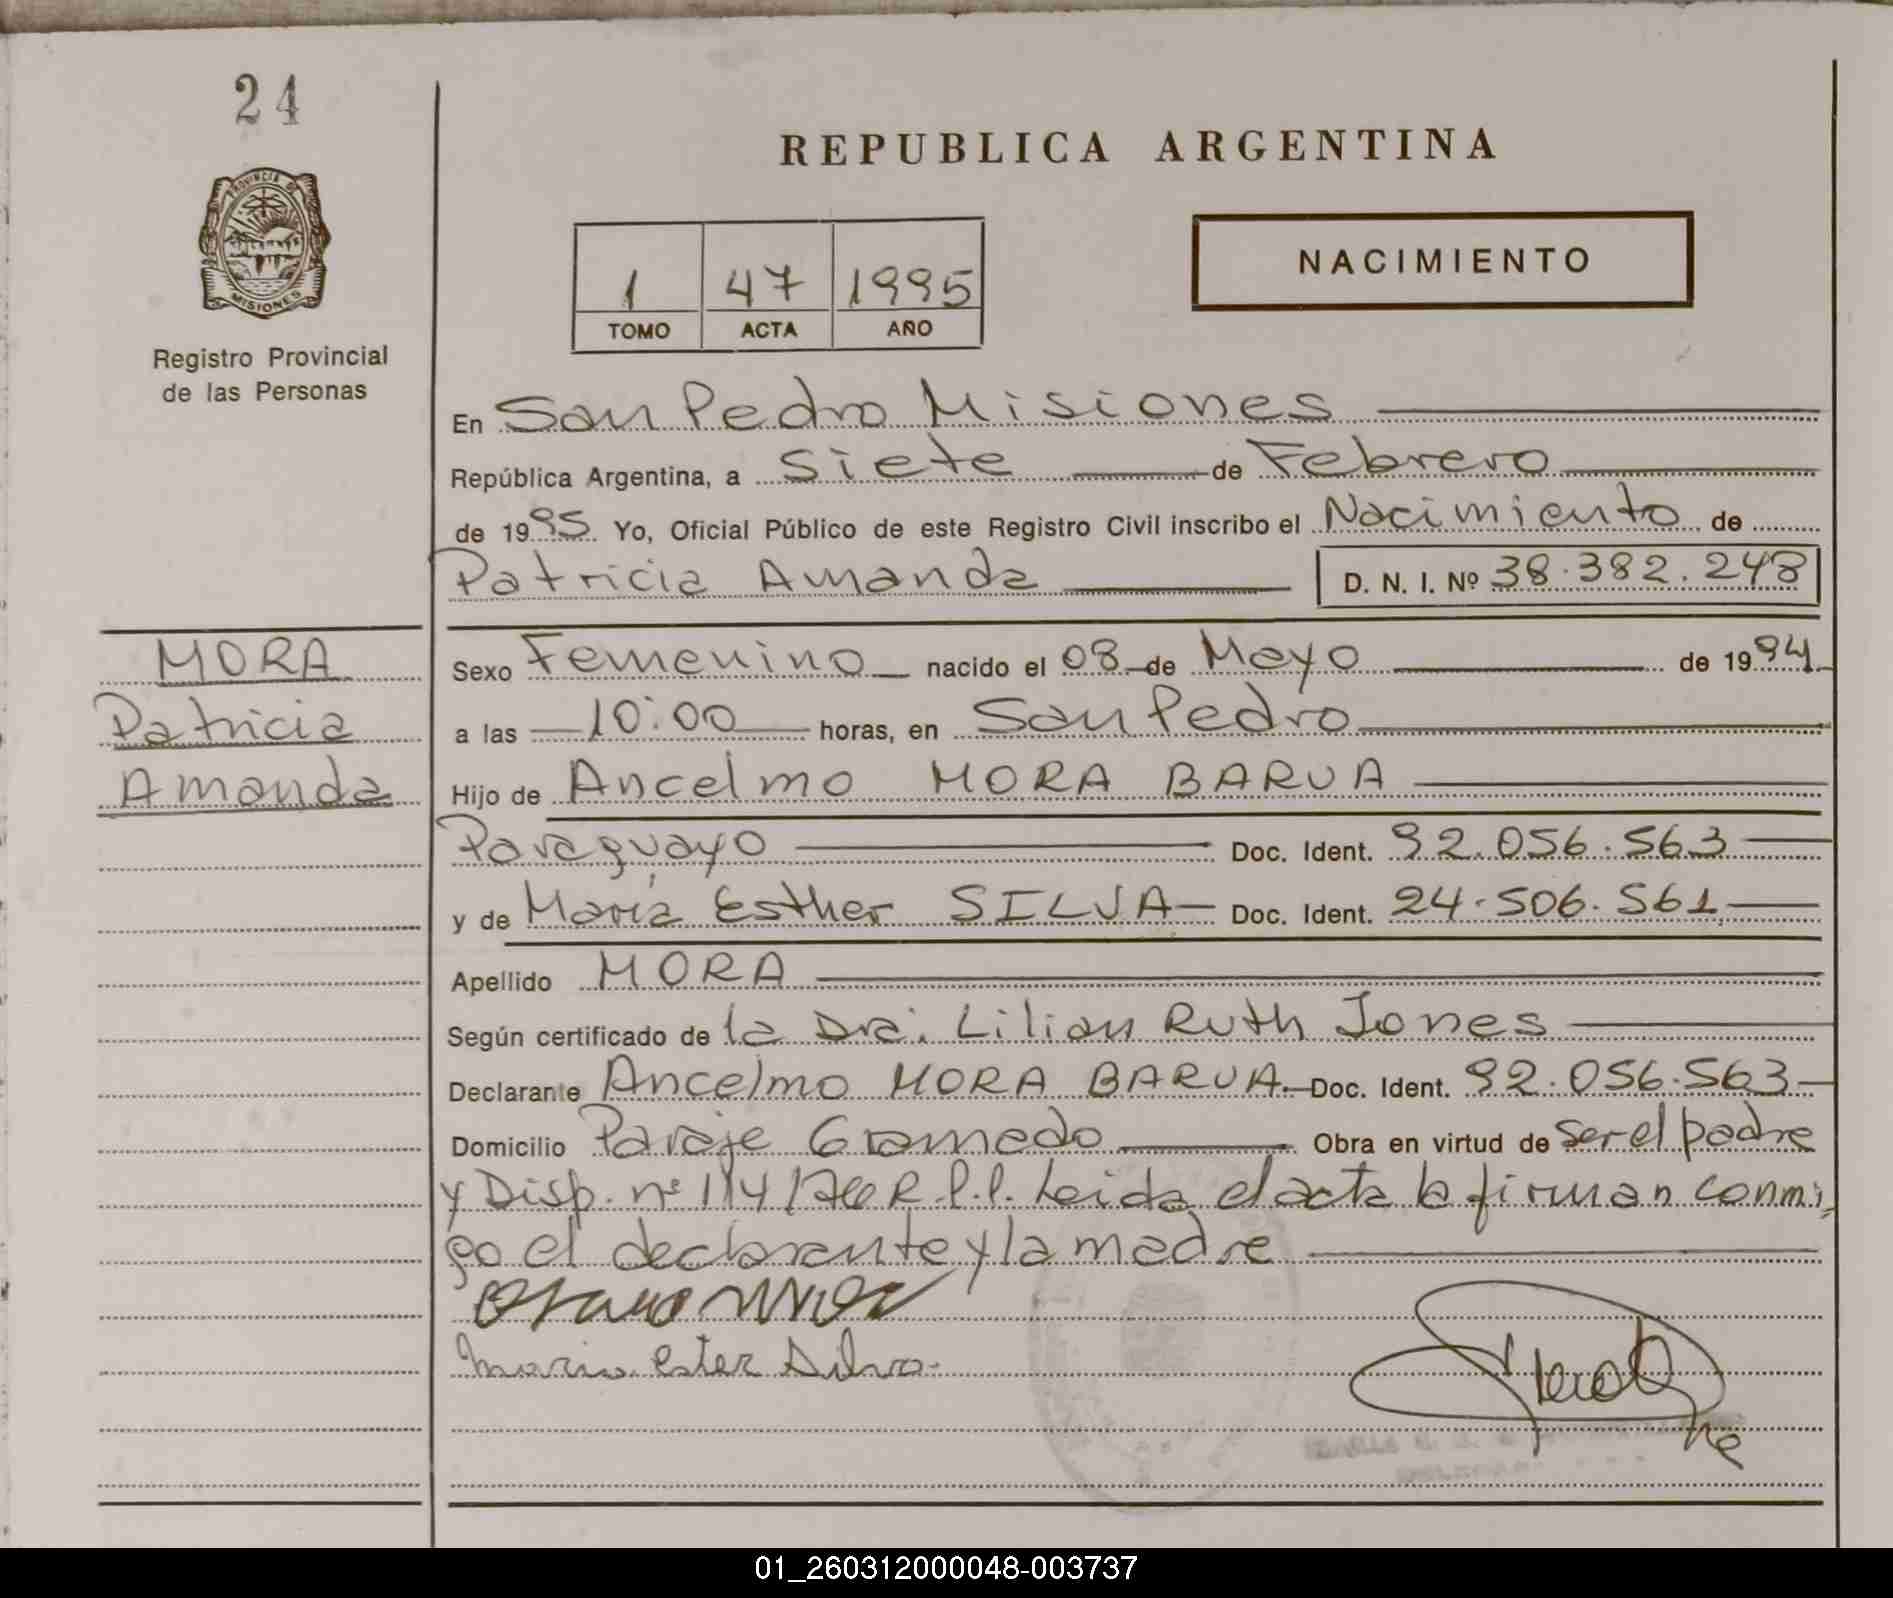 24
PROVINCIA DE
MISIONES
Registro Provincial
de las Personas
REPUBLICA ARGENTINA
1 47 1995
TOMO ACTA AÑO
NACIMIENTO
En San Pedro Misiones
República Argentina, a Siete de Febrero
de 1995 Yo, Oficial Público de este Registro Civil inscribo el Nacimiento de
Patricia Amanda D. N. I. Nº 38.382.248
MORA
Patricia
Amanda
Sexo Femenino nacido el 08 de Mayo de 1994
a las 10:00 horas, en San Pedro
Hijo de Ancelmo MORA BARUA
Paraguayo Doc. Ident. 92.056.563
y de María Esther SILVA Doc. Ident. 24.506.561
Apellido MORA
Según certificado de la Dra. Lilian Ruth Jones
Declarante Ancelmo MORA BARUA Doc. Ident. 92.056.563
Domicilio Paraje Gramado Obra en virtud de ser el padre
y Disp. nº 114/76 R.P.P. Leida el acta la firman conmi
go el declarante y la madre
Maria Ester Silva
01_260312000048-003737